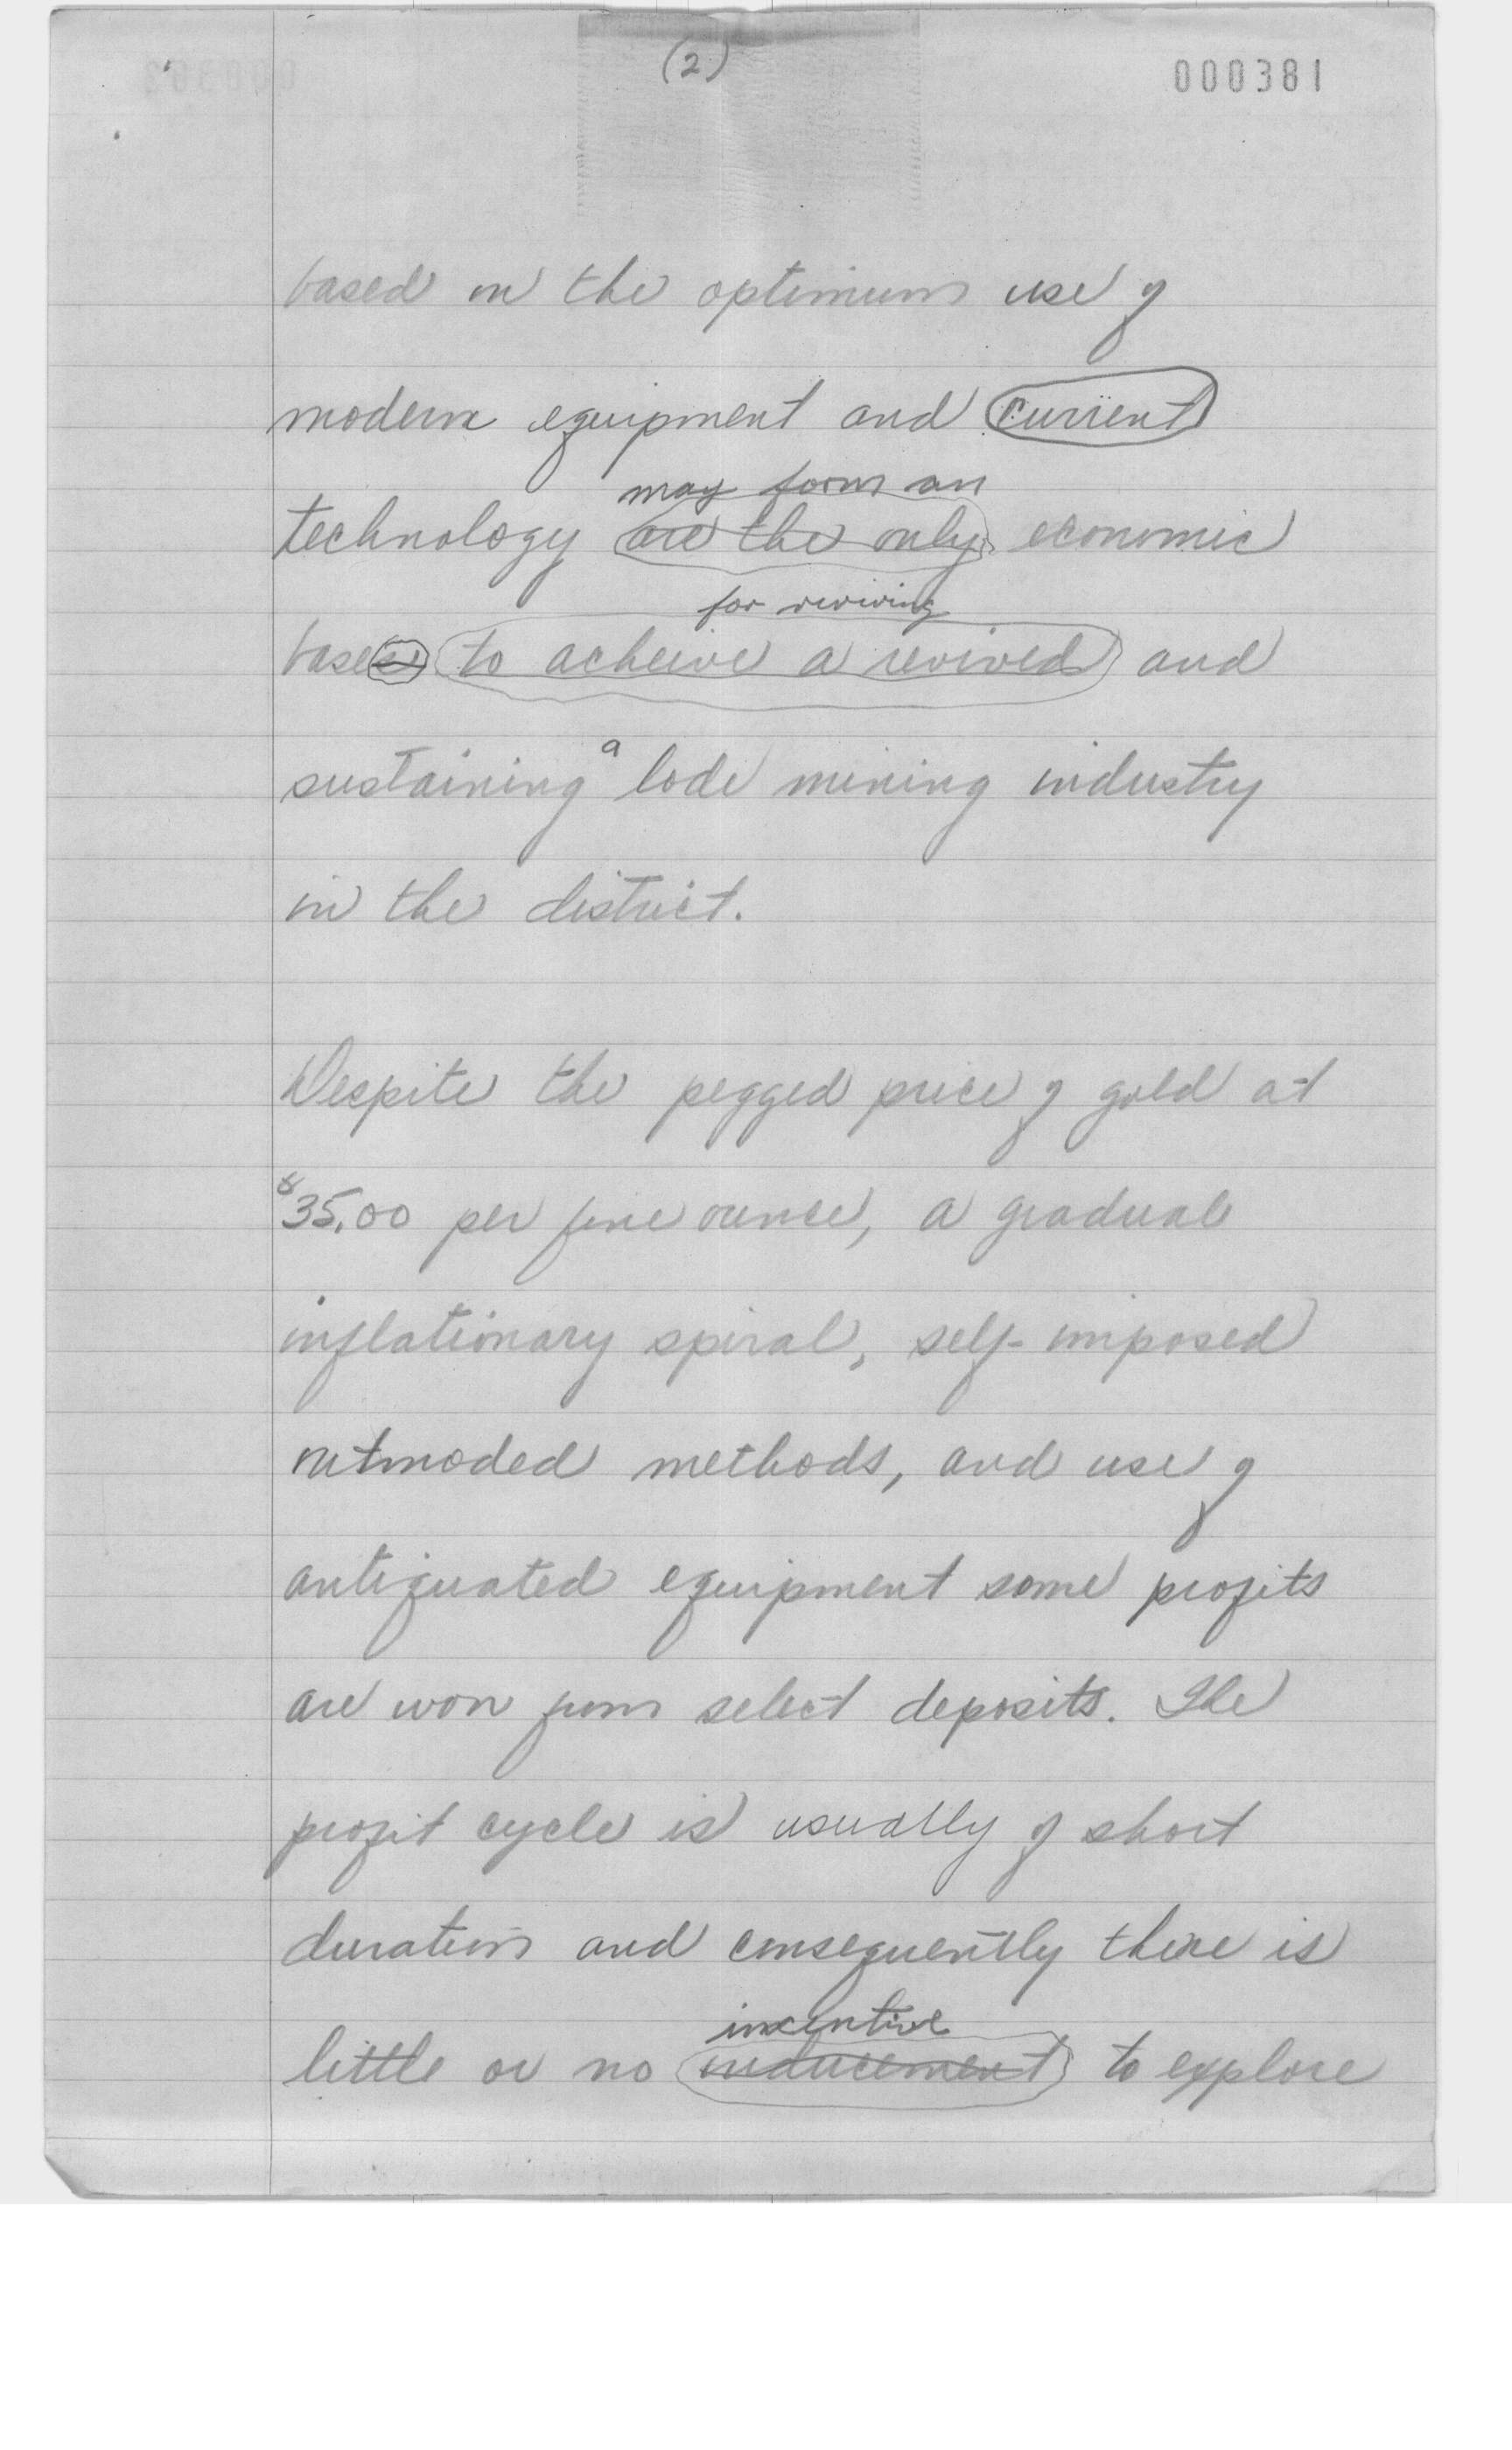 (2)
000381
based on the optimum use of
modern equipment and current
may form an
technology are the only economic
for reviving
bases to acheive a revived and
a
sustaining lode mining industry
in the district.
Despite the pegged price of gold at
$35.00 per fine ounce, a gradual
inflationary spiral, self-imposed
outmoded methods, and use of
antiquated equipment some profits
are won from select deposits. The
profit cycle is usually of short
duration and consequently there is
incentive
little or no inducement to explore